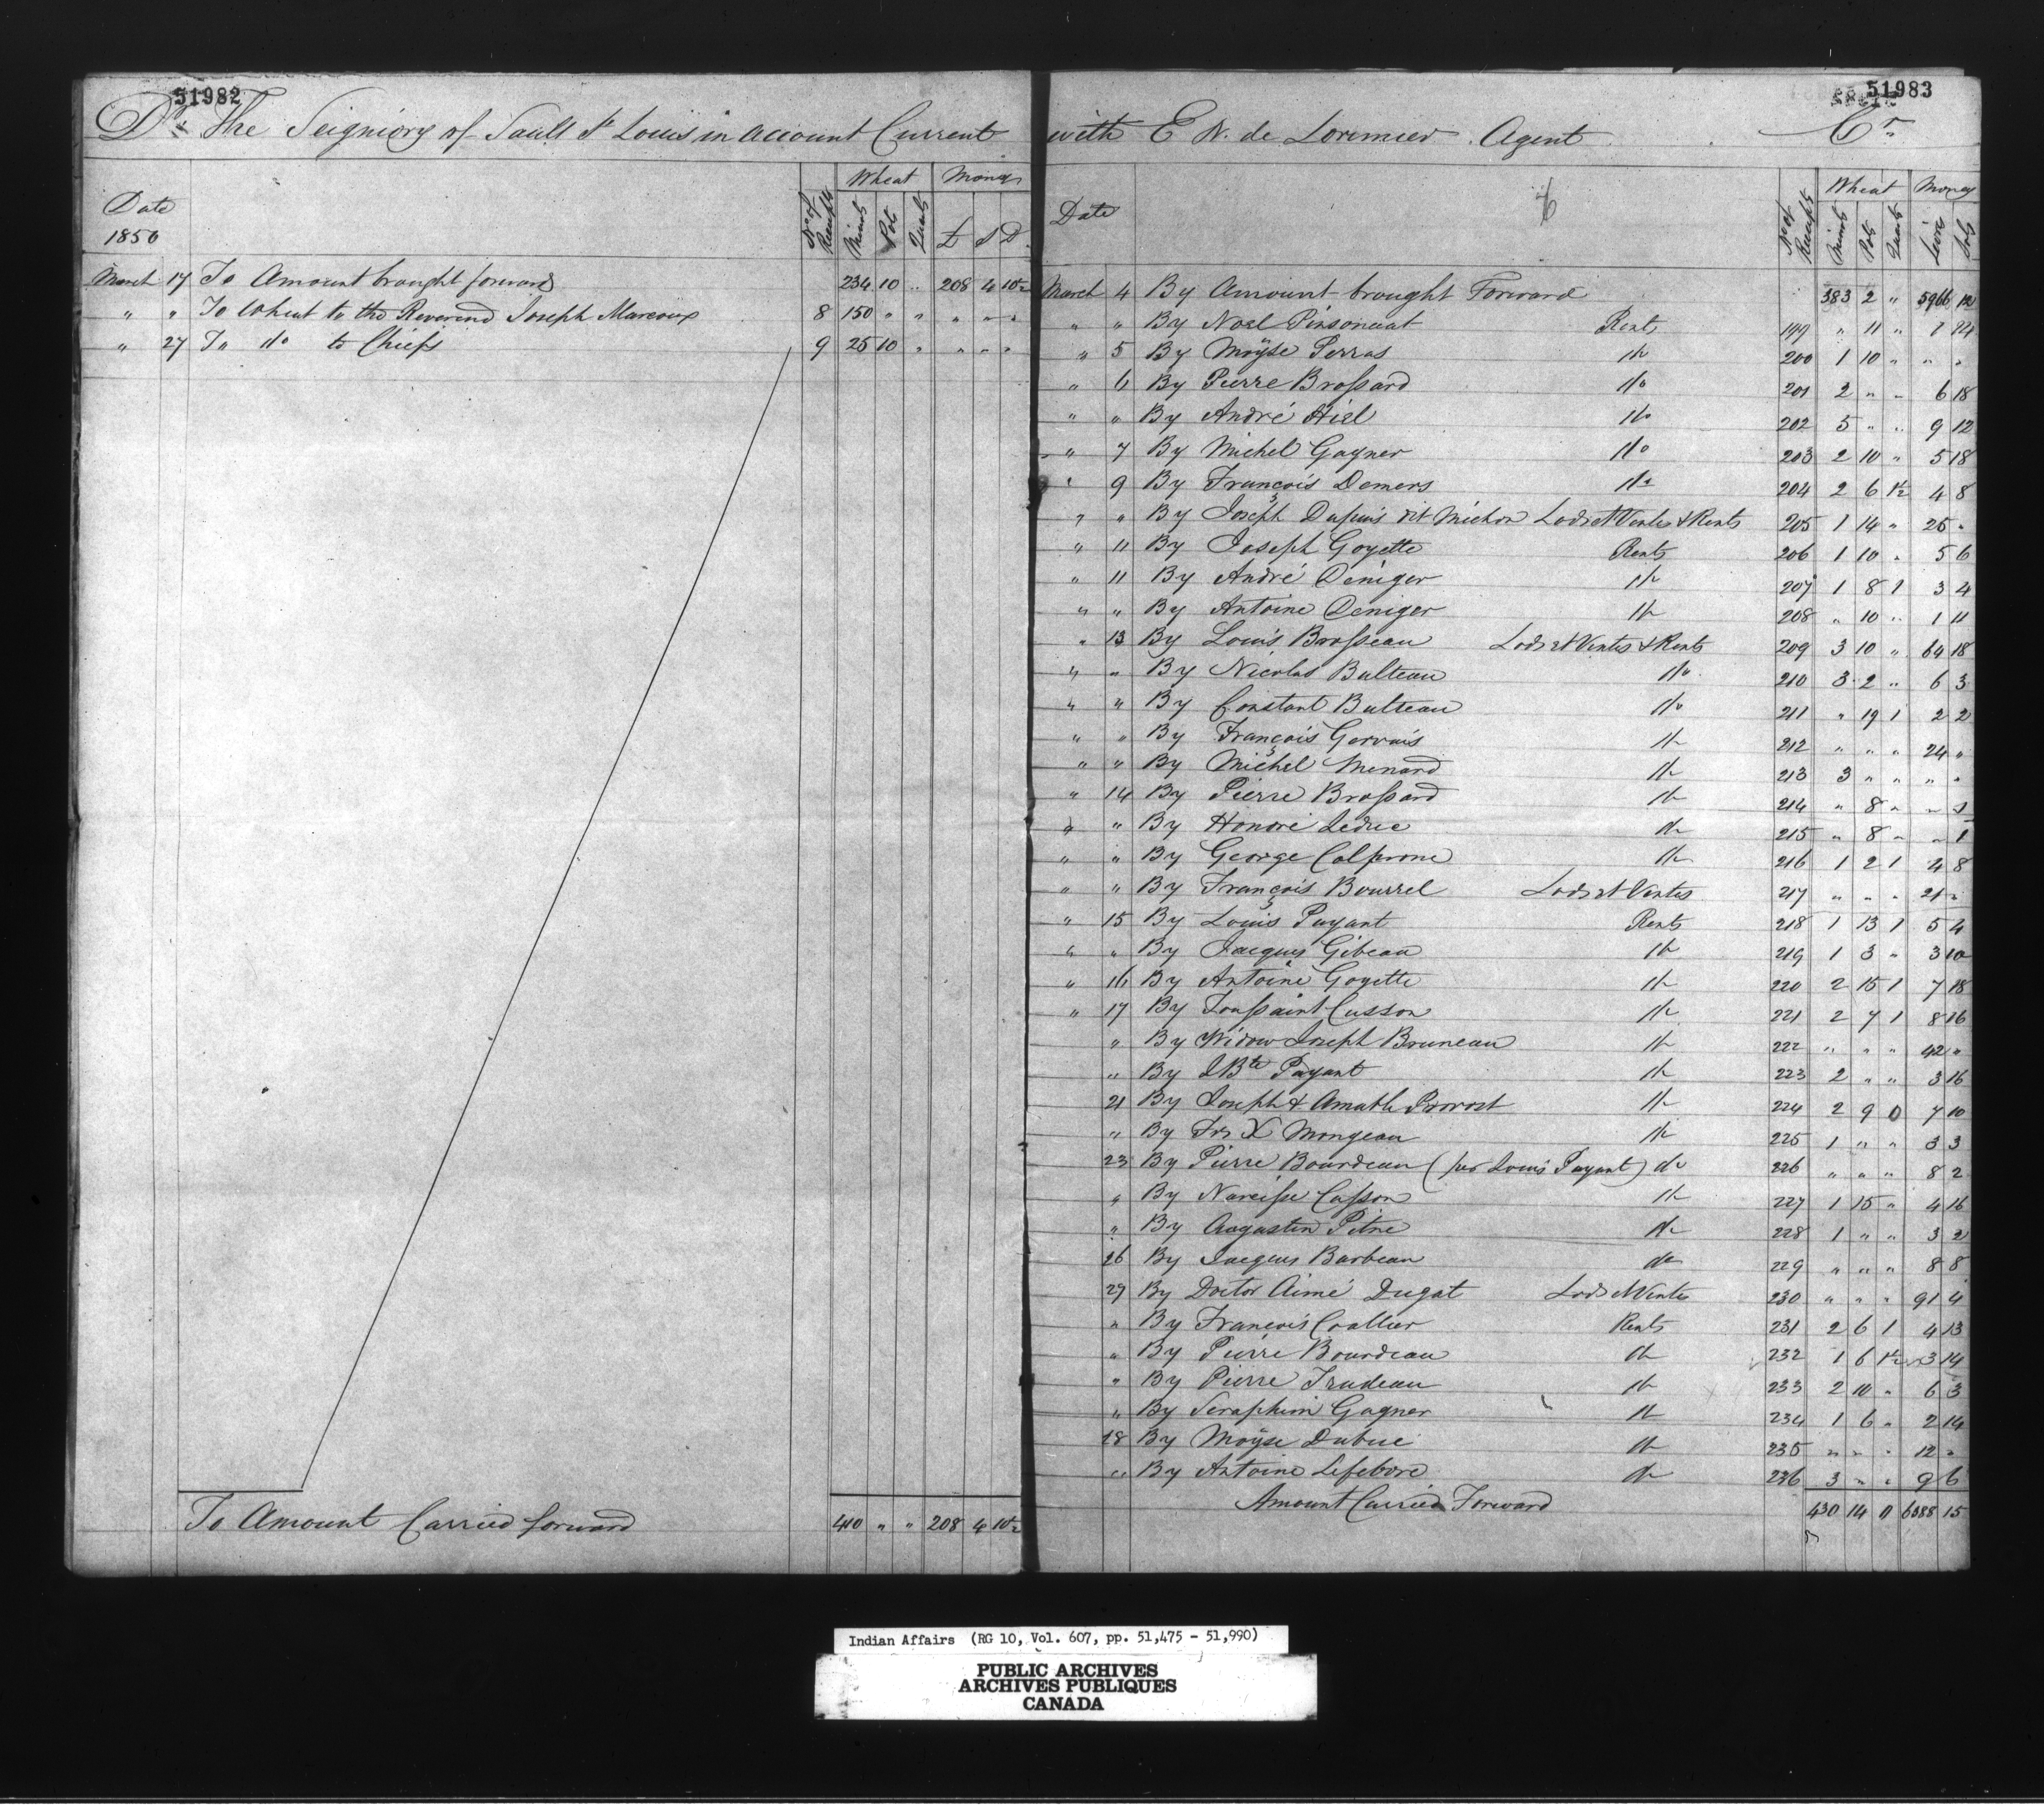 51982
Dr. The Seigniory of Sault St Louis in account Current
Date
1850
No of Receipts
Wheat
Money
Minots Pots Quarts £ S D
March 17 To Amount brought forward 234 10 " 208 4 10½
" " To Wheat to the Reverend Joseph Marcoux 8 150 " " " " "
" 27 To do to Chiefs 9 25 10 " " " "
To Amount Carried forward 410 " " 208 4 10½
51983
with E N. de Lorimier Agent Cr.
Date
No of Receipts
Wheat
Money
Minots Pots Quarts Livres Sols
March 4 By Amount brought Forward 383 2 " 5966 12
" " By Noel Pinsonaut Rents 199 " 11 " 1 24
" 5 By Moÿse Perras do 200 1 10 " " "
" 6 By Pierre Brossard do 201 2 " " 6 18
" " By André Hiel do 202 5 " " 9 12
" 7 By Michel Gagner do 203 2 10 " 5 18
" 9 By François Demers do 204 2 6 1½ 4 8
" " By Joseph Dupuis dit Michon Lods et Ventes & Rents 205 1 14 " 25 "
" 11 By Joseph Goyette Rents 206 1 10 " 5 6
" 11 By André Deniger do 207 1 8 1 3 4
" " By Antoine Deniger do 208 " 10 " 1 11
" 13 By Louis Brosseau Lods et Ventes & Rents 209 3 10 " 64 18
" " By Nicolas Bulteau do 210 3 2 " 6 3
" " By Constant Bulteau do 211 " 19 1 2 2
" " By François Gervais do 212 " " " 24 "
" " By Michel Menard do 213 3 " " " "
" 14 By Pierre Brossard do 214 " 8 " " 1
" " By Honoré Leduc do 215 " 8 " " 1
" " By George Calprone do 216 1 2 1 4 8
" " By François Bourrel Lods et Ventes 217 " " " 21 "
" 15 By Louis Payant Rents 218 1 13 1 5 4
" " By Jacques Gibeau do 219 1 3 " 3 10
" 16 By Antoine Goyette do 220 2 15 1 7 18
" 17 By Toussaint Cusson do 221 2 7 1 8 16
" By Widow Joseph Bruneau do 222 " " " 42 "
" By J Bte Payant do 223 2 " " 3 16
21 By Joseph & Amable Provost do 224 2 9 0 7 10
" By Frs X Mongeau do 225 1 " " 3 3
23 By Pierre Bourdeau (per Louis Payant) do 226 " " " 8 2
" By Narcisse Casson do 227 1 15 " 4 16
" By Augustin Pitre do 228 1 " " 3 2
26 By Jacques Barbeau do 229 " " " 8 8
27 By Doctor Aimé Dugat Lods et Ventes 230 " " " 91 4
" By François Coallier Rents 231 2 6 1 4 13
" By Pierre Bourdeau do 232 1 6 1½ 3 14
" By Pierre Trudeau do 233 2 10 " 6 3
" By Seraphim Gagner do 234 1 6 " 2 14
28 By Moÿse Dubuc do 235 " " " 12 "
" By Antoine Lefebvre do 236 3 " " 9 6
Amount Carried Forward 430 14 0 6388 15
Indian Affairs (RG 10, Vol. 607, pp. 51,475 - 51,990)
PUBLIC ARCHIVES
ARCHIVES PUBLIQUES
CANADA